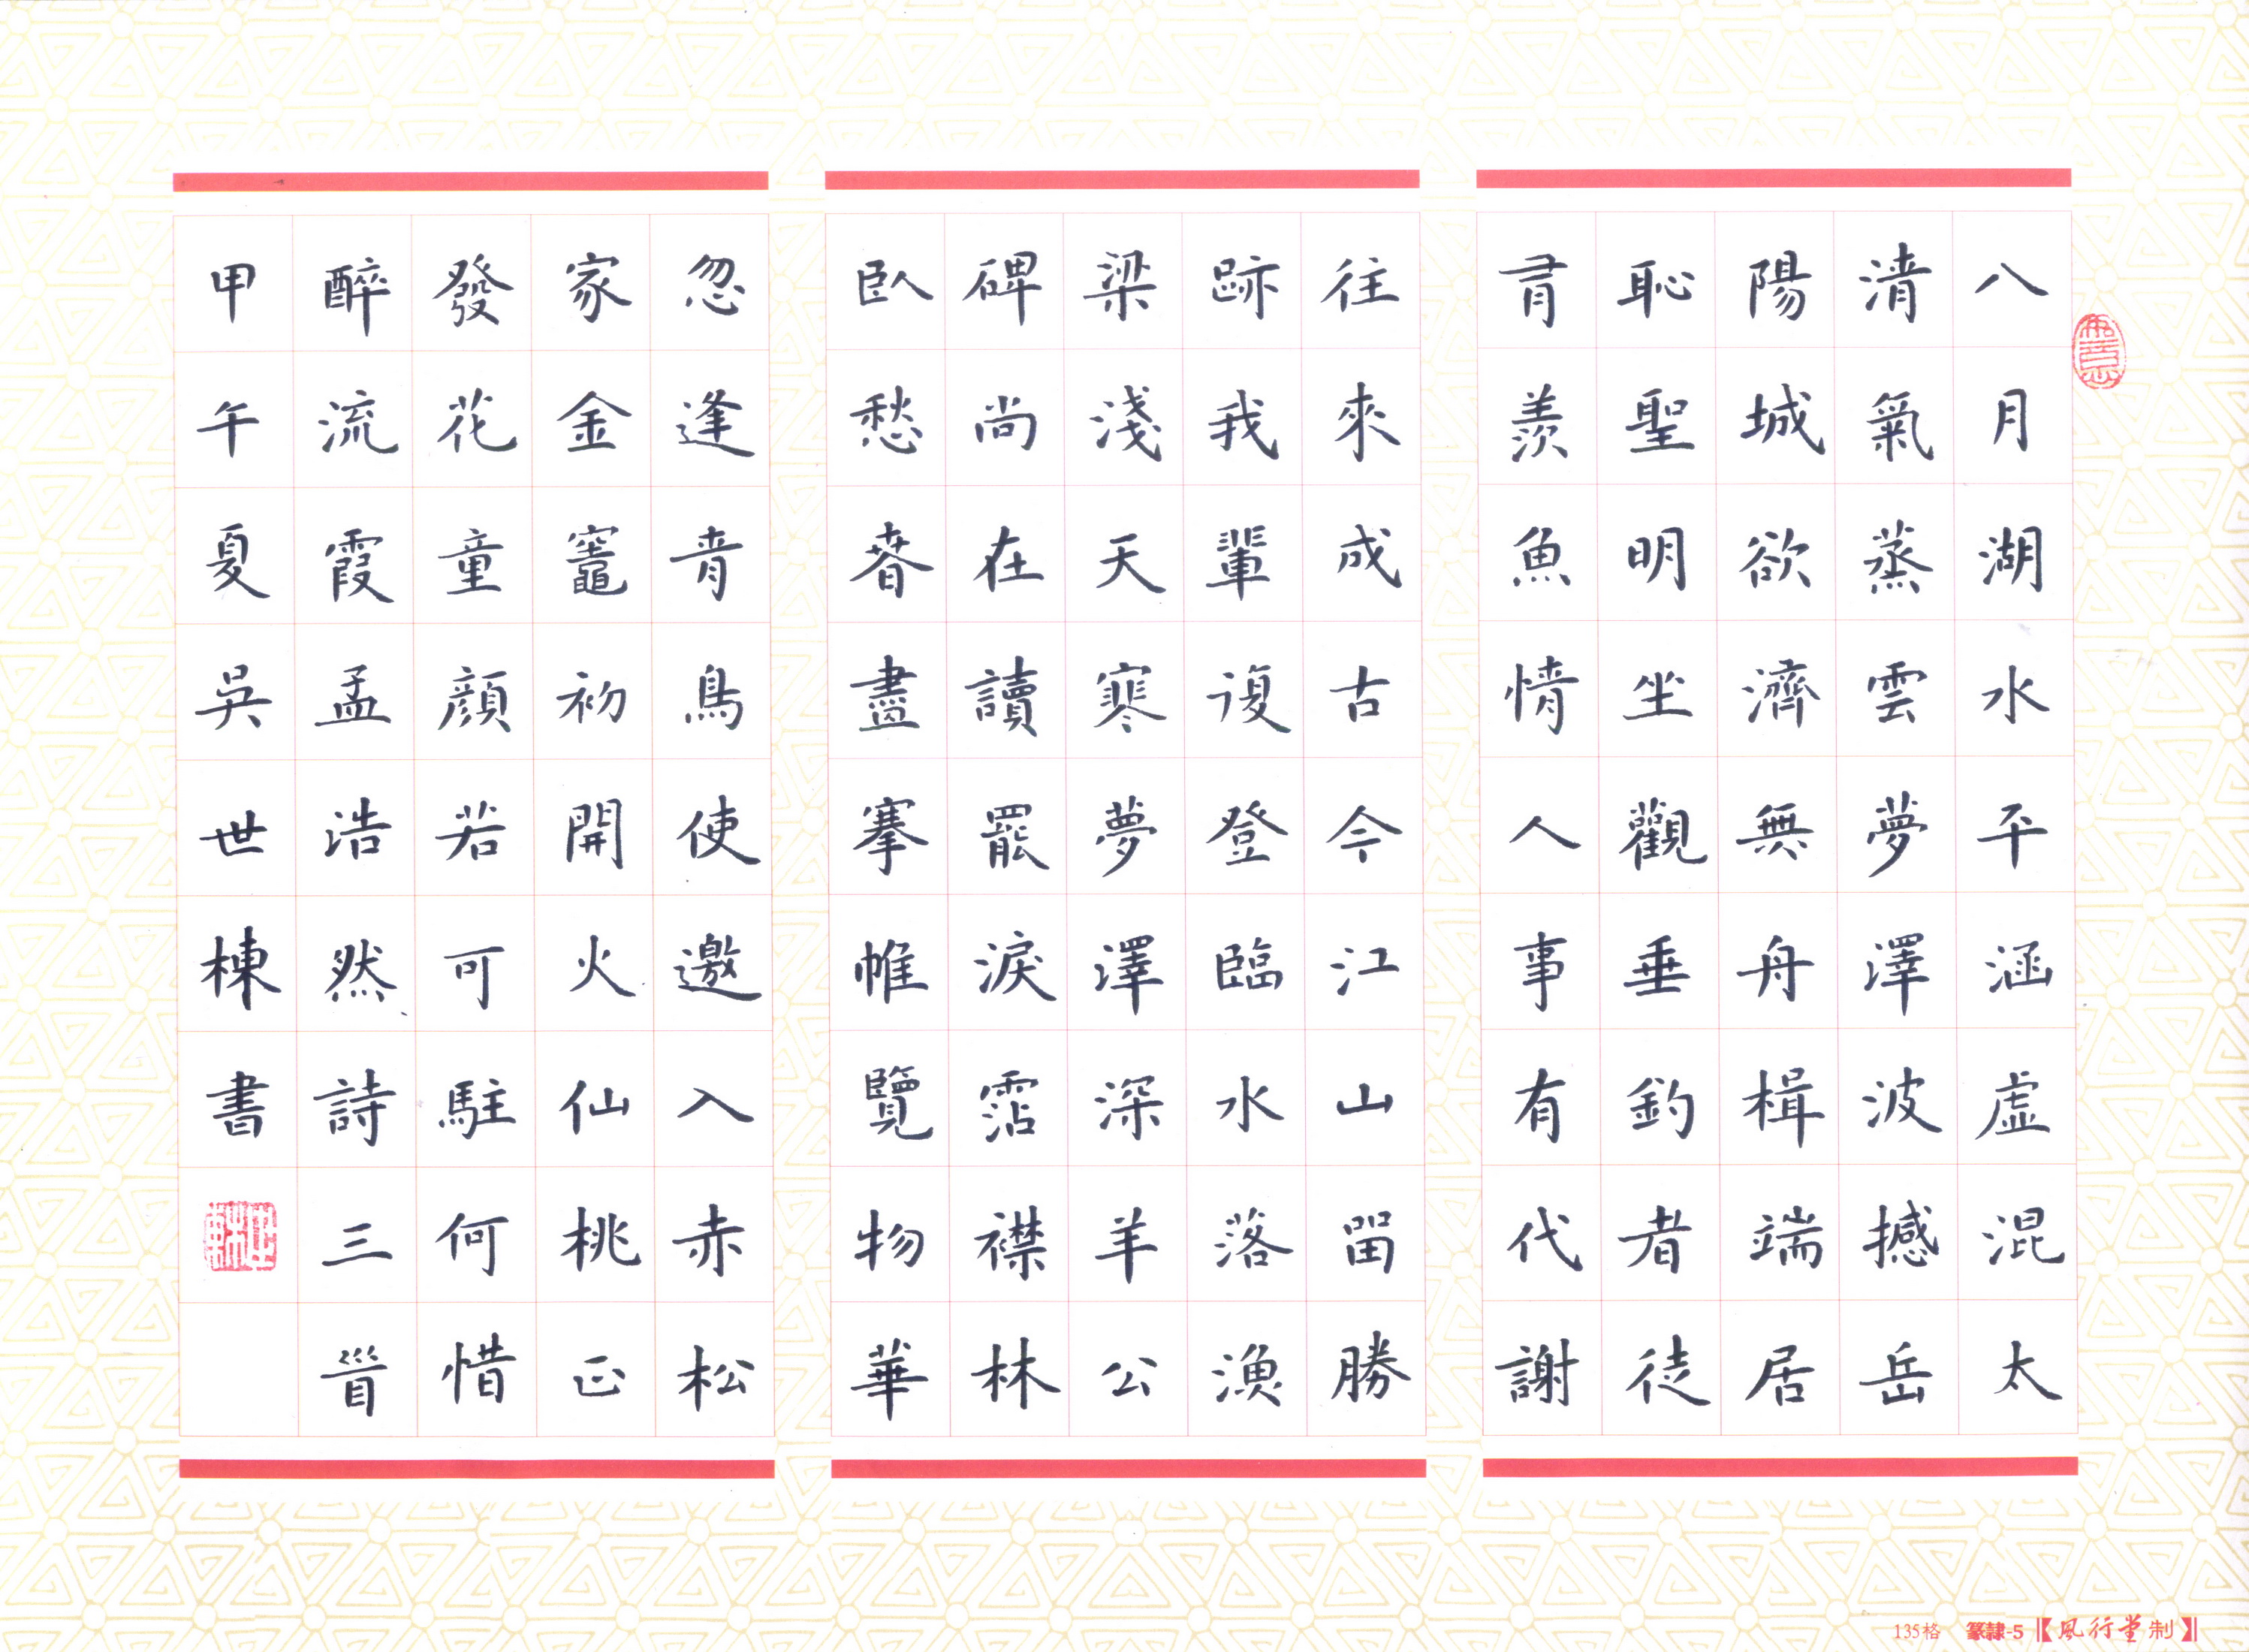 八月湖水平涵虛混太
清氣蒸雲夢澤波撼岳
陽城欲濟無舟楫端居
恥聖明坐觀垂釣者徒
有羨魚情人事有代謝
往來成古今江山留勝
跡我輩復登臨水落漁
梁淺天寒夢澤深羊公
碑尚在讀罷淚霑襟林
臥愁春盡搴帷覽物華
忽逢青鳥使邀入赤松
家金竈初開火仙桃正
發花童顏若可駐何惜
醉流霞孟浩然詩三首
甲午夏吳世棟書
世棟
135格 篆隸-5 【風行堂制】